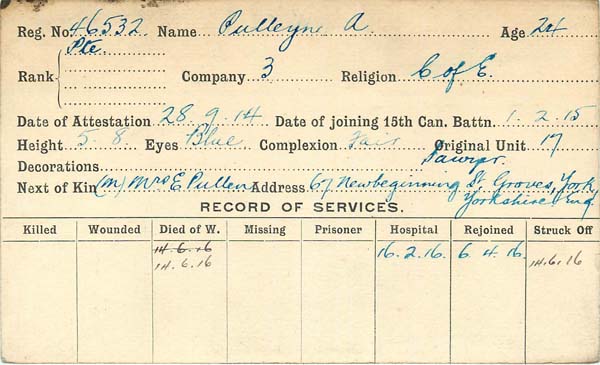 Reg. No. 46532 Name Pulleyne A Age 24
Pte.
Rank Company 3 Religion C of E.
Date of Attestation 28.9.14 Date of joining 15th Can. Battn. 1.2.15
Height 5.8 Eyes Blue Complexion Fair Original Unit 17
Decorations
Next of Kin (m) Mrs E Pullen Address 67 Newbeginning St. Groves, York,
Yorkshire Eng
RECORD OF SERVICES.
Killed Wounded Died of W. Missing Prisoner Hospital Rejoined Struck Off
14.6.16 16.2.16. 6.4.16. 14.6.16
14.6.16